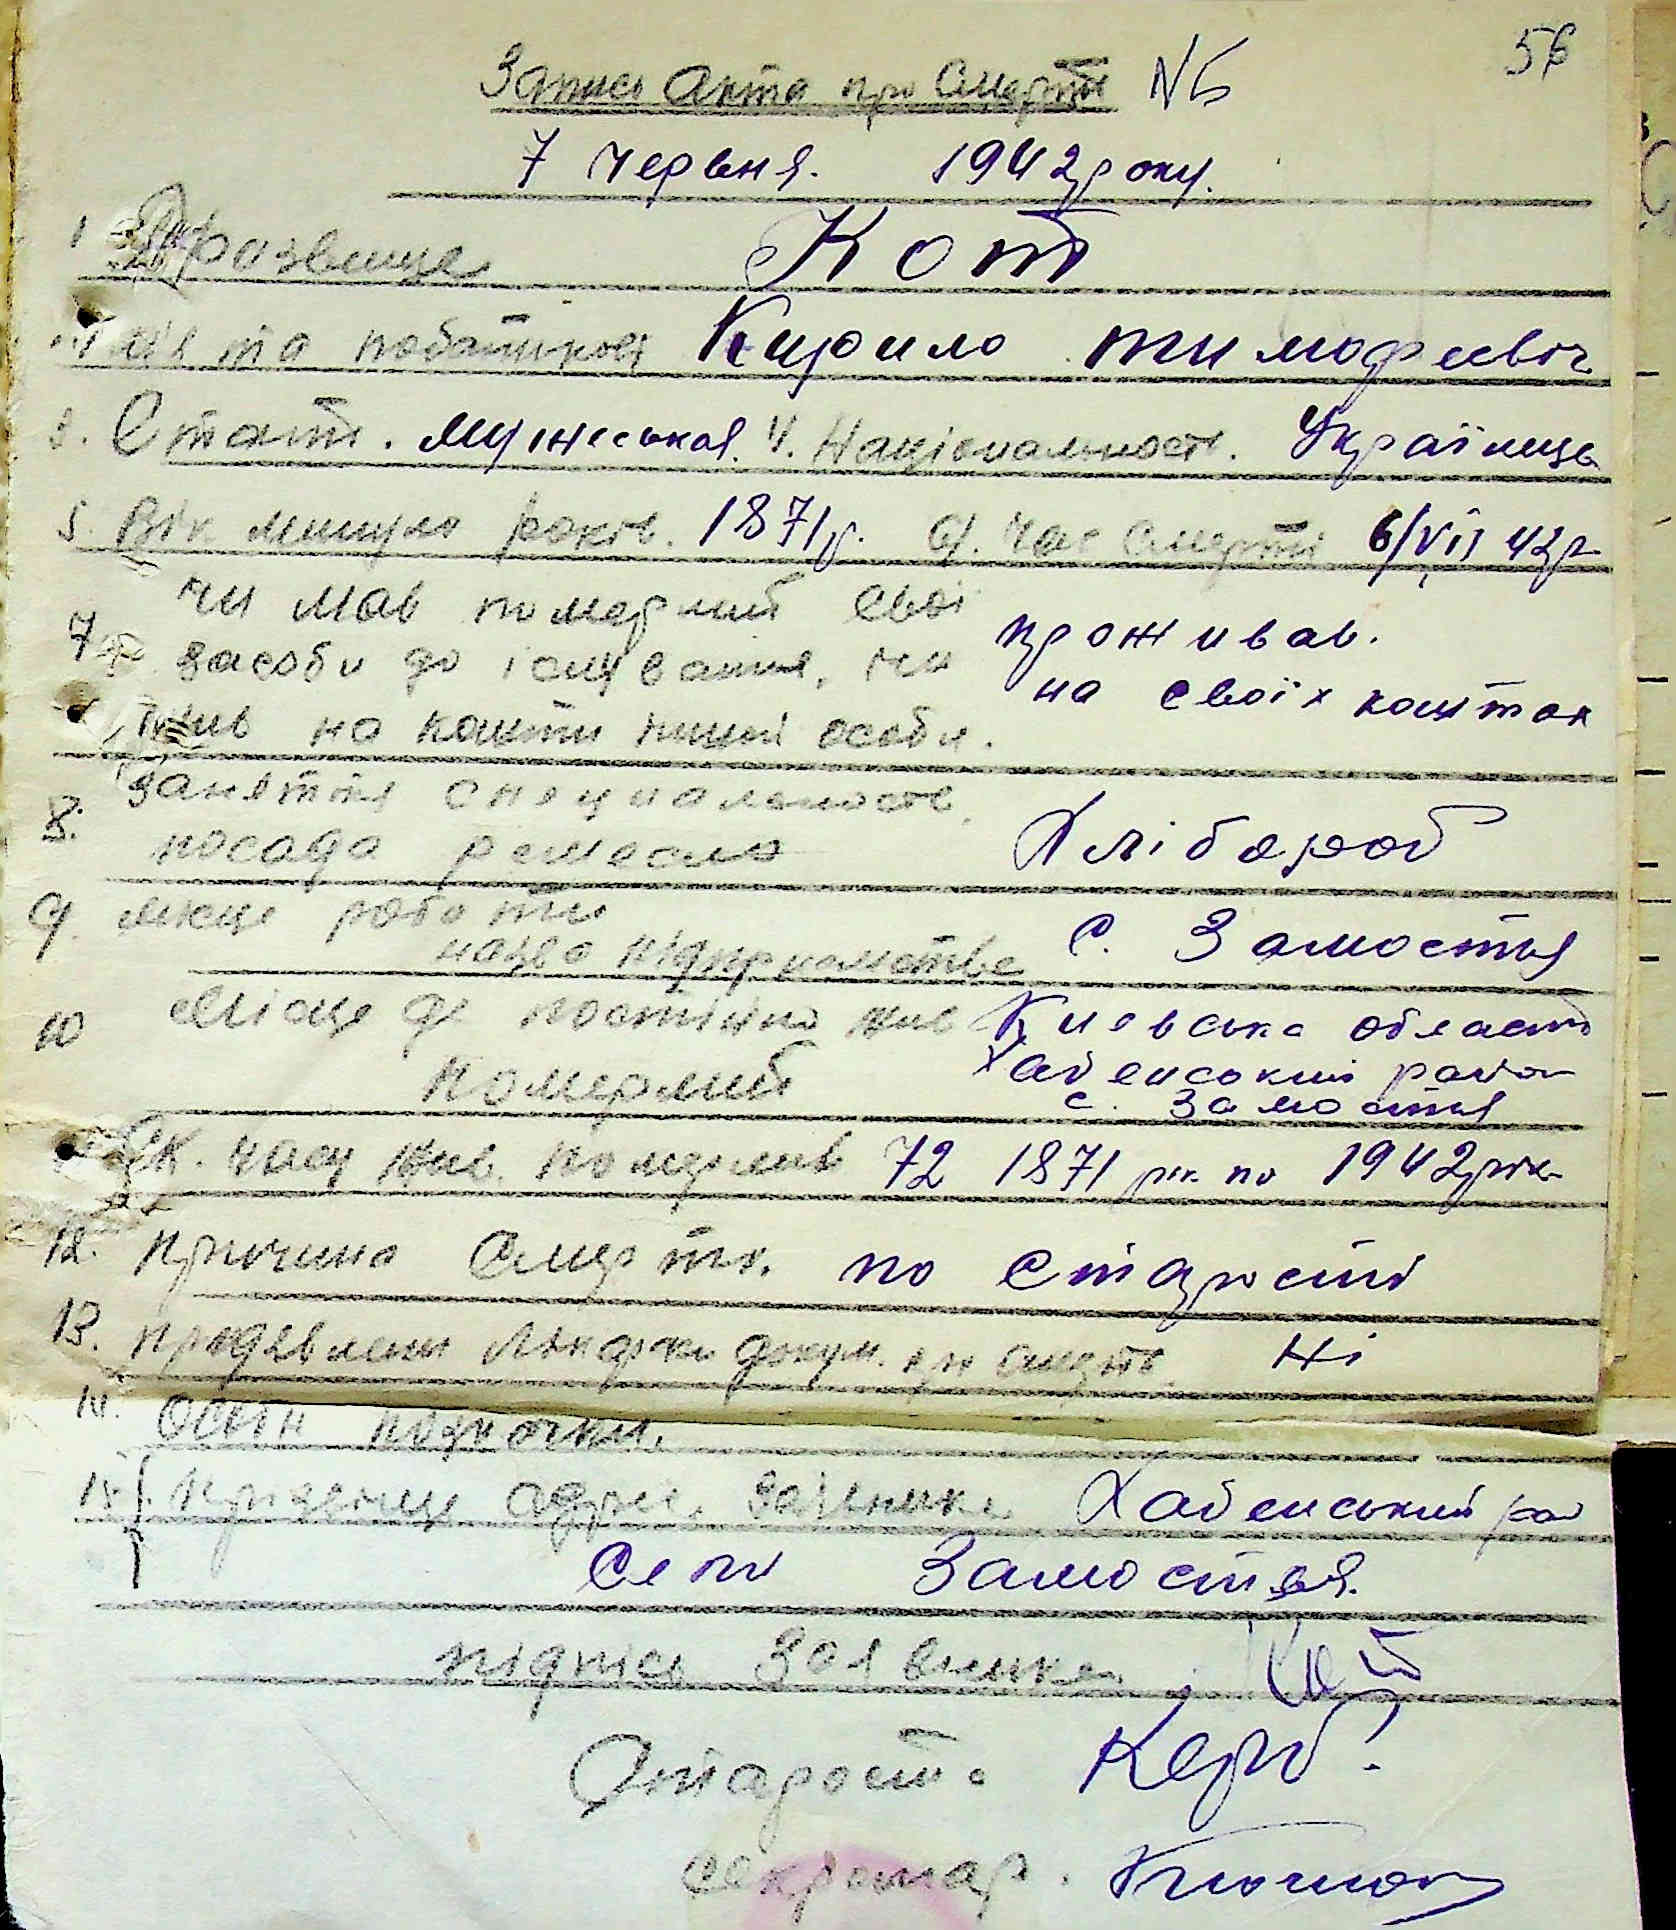 56
Запись акта про Смерть № 6
7 червня. 1942 року.
1 Прозвище Кот
імя та побатькові Кирило тимофиевіч
3. Стать. мужеськая. 4. Національность. Українець
5. Вік минуло років. 1871 р. 6. Час смерті 6/VII 42 р
чи мав померший свої
7 засоби до існування, чи
проживав.
на своїх коштах
жив на кошти іншої особи.
8. заняття специальность
посада ремесло Хлібороб
9. місце работи
назва підприемства с. Замостья
10 Місце де постійно жив Киевська область
померший Хабенський район
с. Замостья
Ск. часу жив. померший 72 1871 рік по 1942 рік
12. причина Смерти. по старості
13. предявлени докум. про смерть Ні
14. Особи
15. Прізвіще адрес заявника Хабенський рай
село Замостья.
підпісь Заявника Кот
Старост.
Секретар.